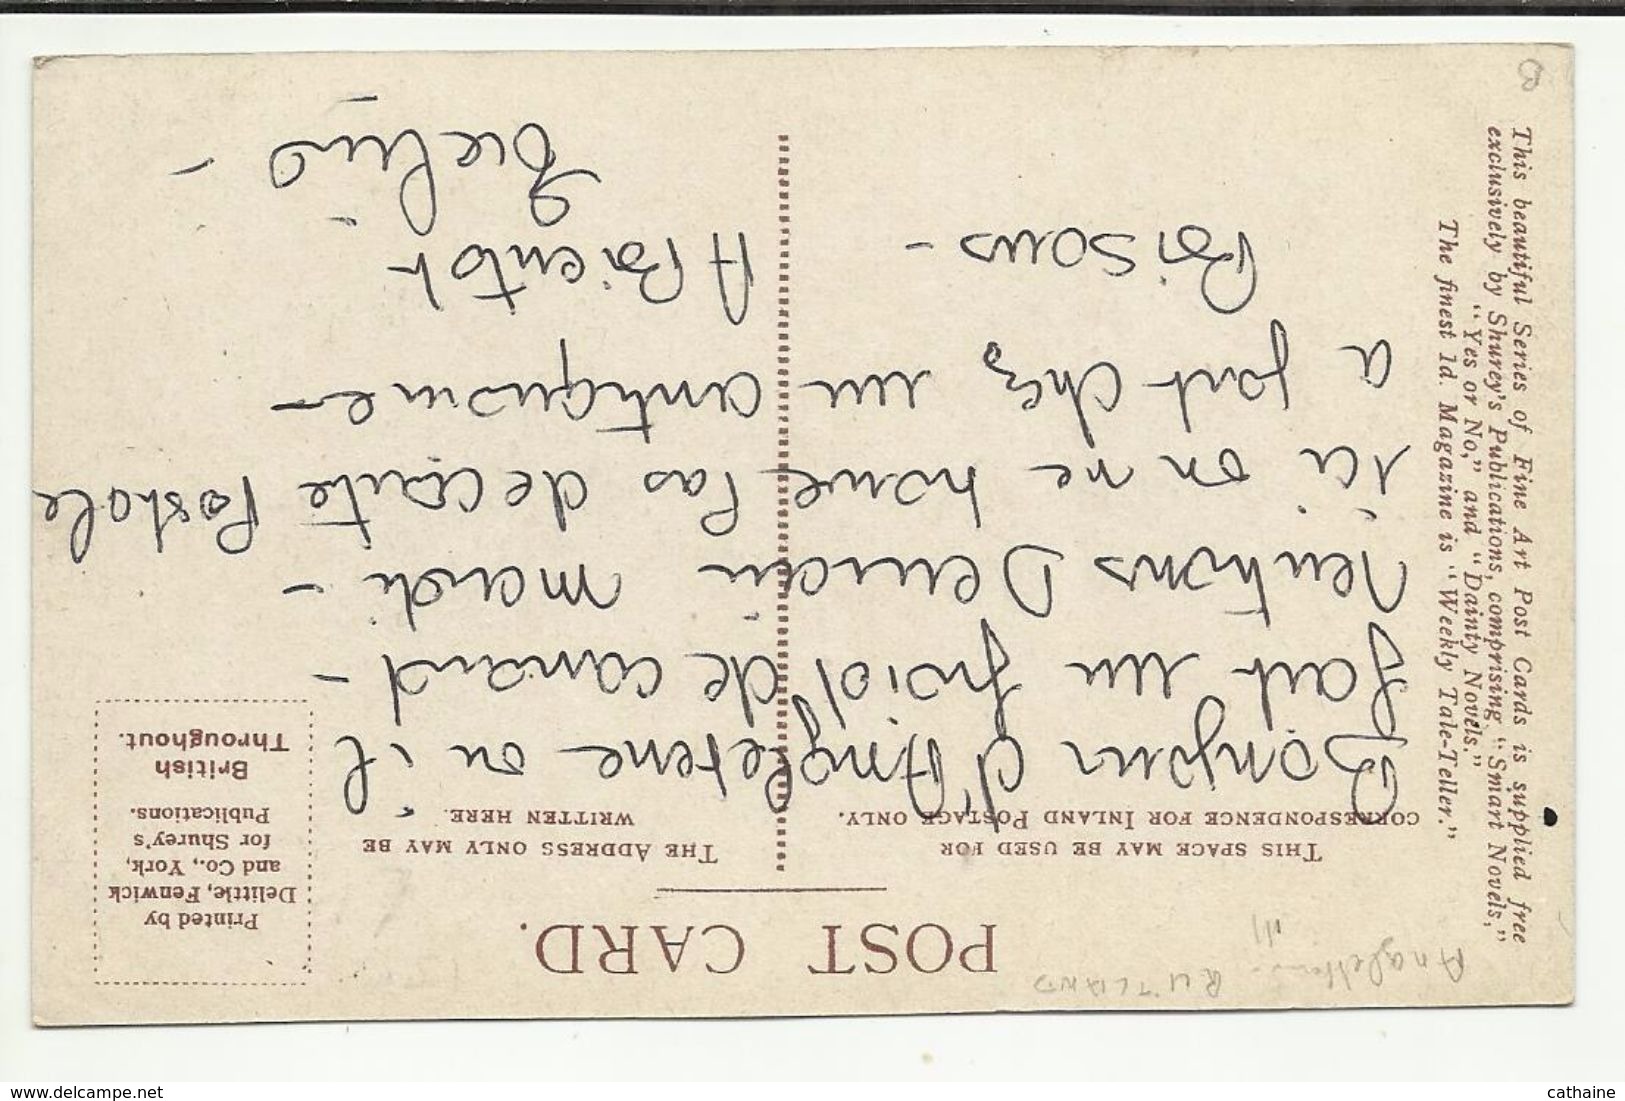 POST CARD.
THIS SPACE MAY BE USED FOR
CORRESPONDENCE FOR INLAND POSTAGE ONLY.
THE ADDRESS ONLY MAY BE
WRITTEN HERE.
Printed by
Delittle, Fenwick
and Co., York,
for Shurey's
Publications.
British
Throughout.
Bonjour d'Angleterre ou il
fait un froid de canard -
rentrons Demain mardi -
ici on ne trouve pas de carte Postale
a part chez un antiquaire -
Bisous -
A Bientot
This beautiful Series of Fine Art Post Cards is supplied free
exclusively by Shurey's Publications, comprising "Smart Novels,"
"Yes or No," and "Dainty Novels."
The finest 1d. Magazine is "Weekly Tale-Teller."
RUTLAND
B
delcampe.net
cathaine